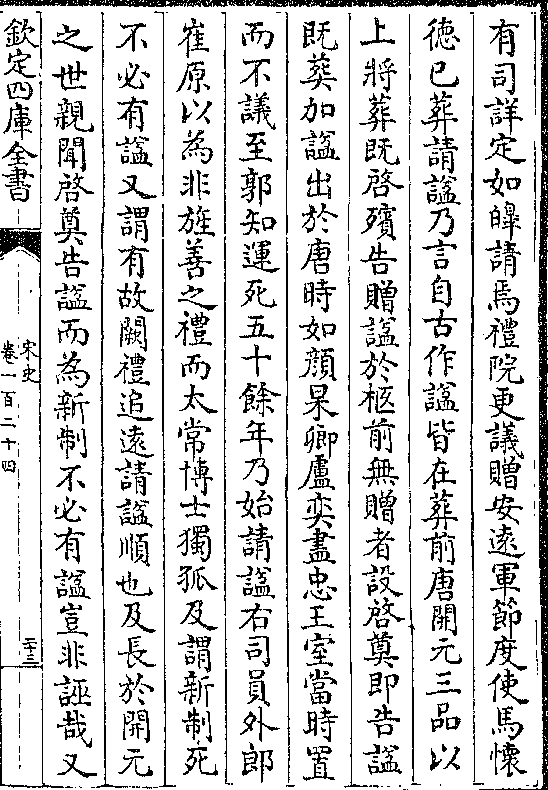 有司詳定如皞請焉禮院更議贈安逺軍節度使馬懷
徳已葬請諡乃言自古作諡皆在葬前唐開元三品以
上將葬既啓殯告贈諡於柩前無贈者設啓奠即告諡
既葬加諡出於唐時如顔杲卿盧奕盡忠王室當時置
而不議至郭知運死五十餘年乃始請諡右司員外郎
崔原以為非旌善之禮而太常博士獨孤及謂新制死
不必有諡又謂有故闕禮追逺請諡順也及長於開元
之世親聞啓奠告諡而為新制不必有諡豈非誣哉又
欽定四庫全書
宋史
卷一百二十四
二十三